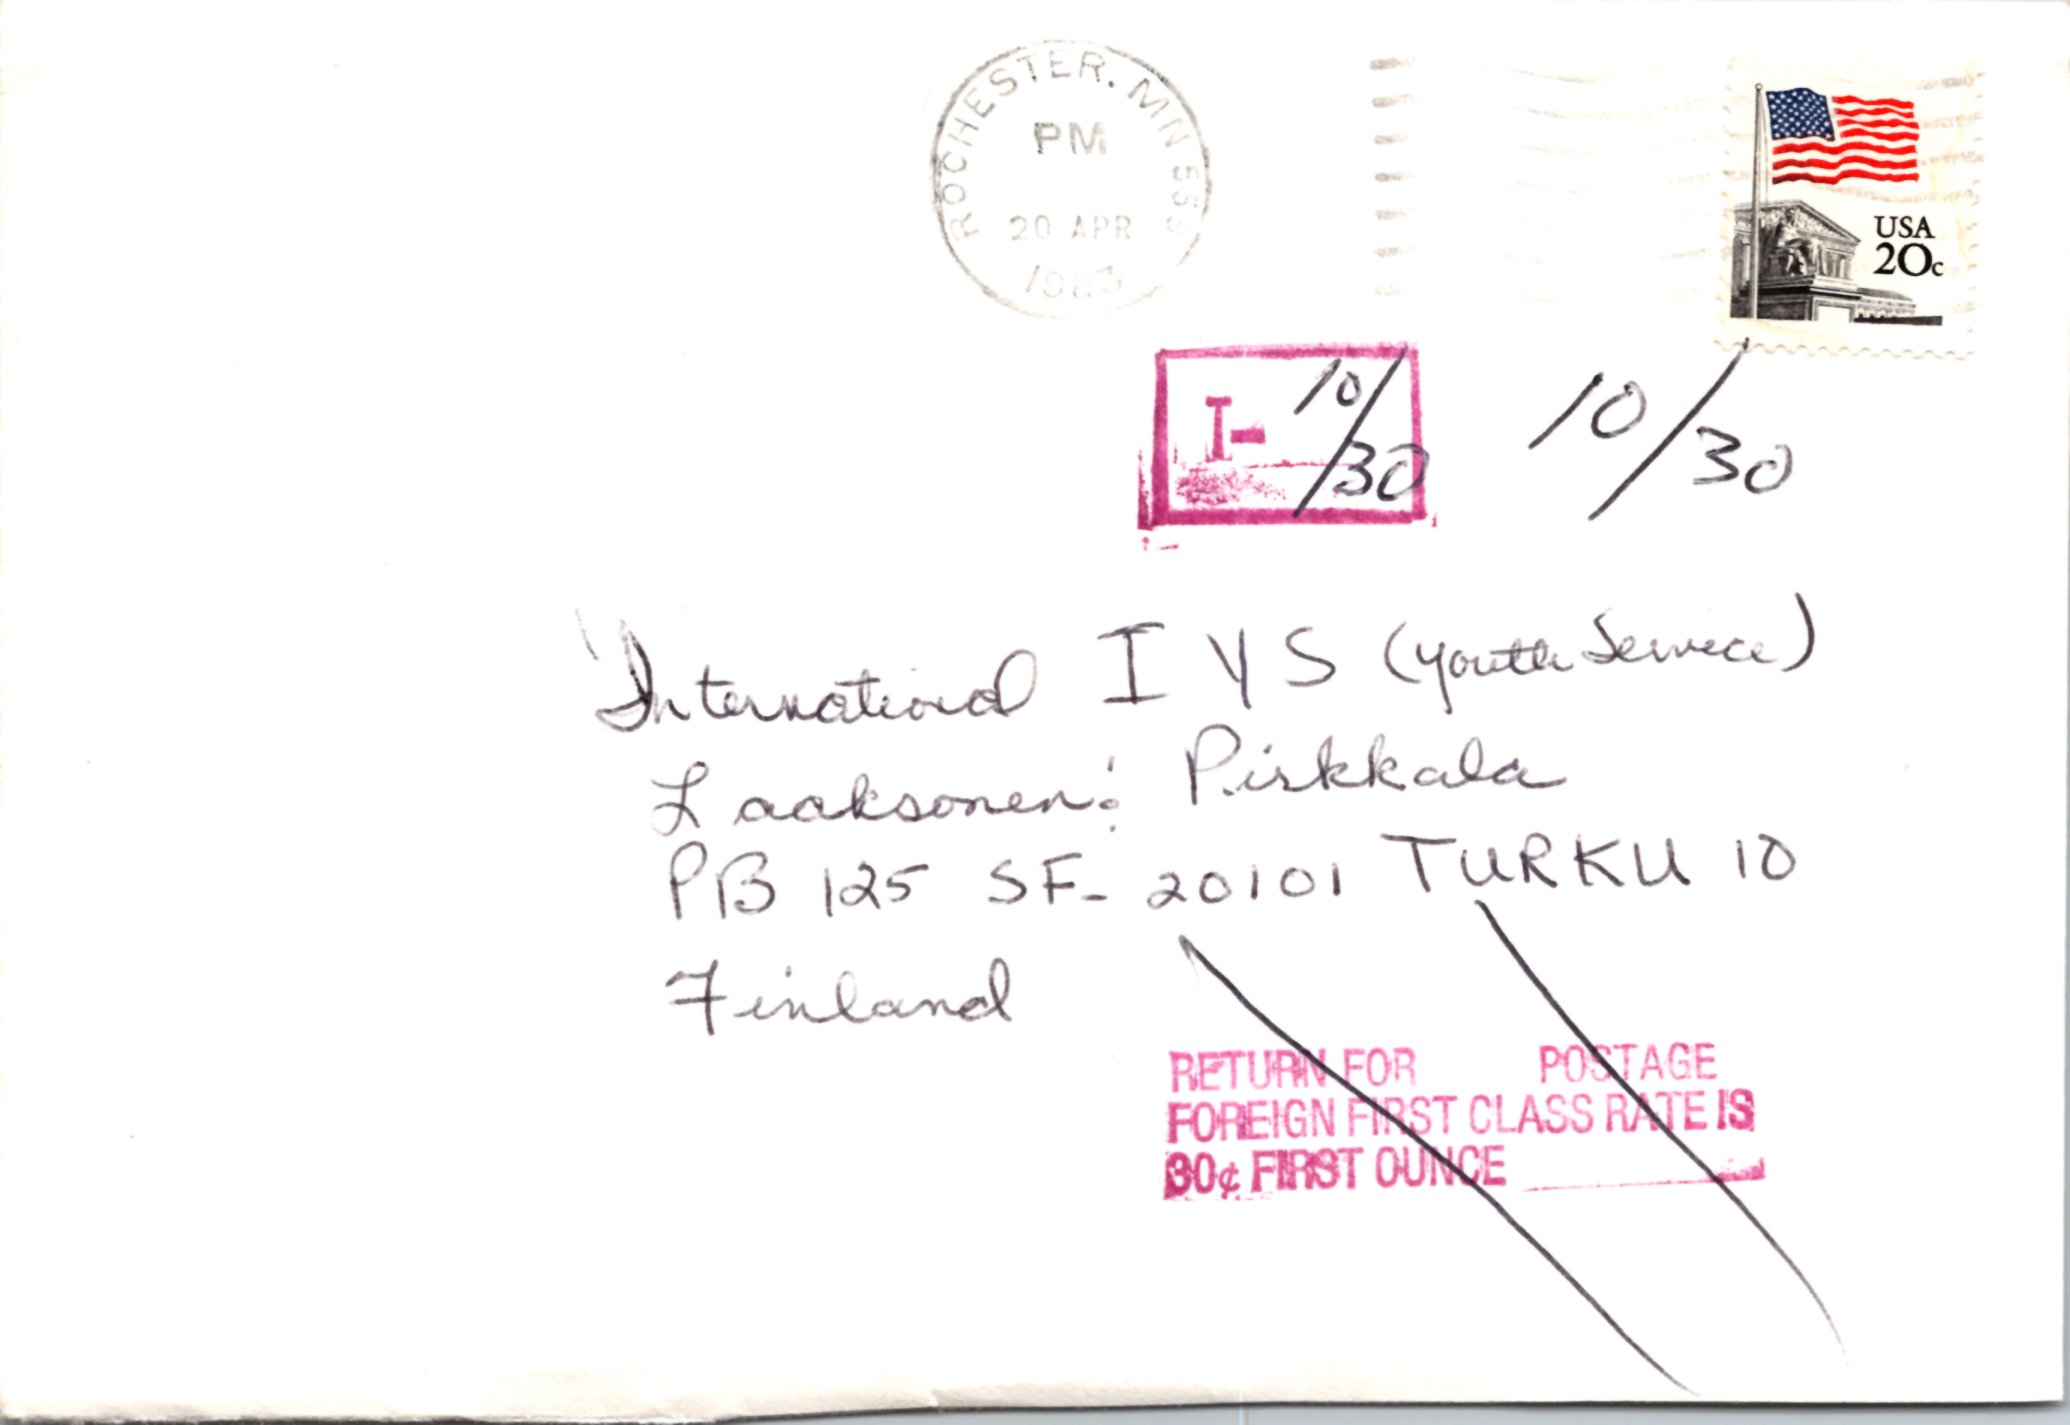 ROCHESTER, MN 559
PM
20 APR
1983
USA
20c
T-
10/30
10/30
International I Y S (Youth Service)
Laaksonen: Pirkkala
PB 125 SF- 20101 TURKU 10
Finland
RETURN FOR POSTAGE
FOREIGN FIRST CLASS RATE IS
30¢ FIRST OUNCE